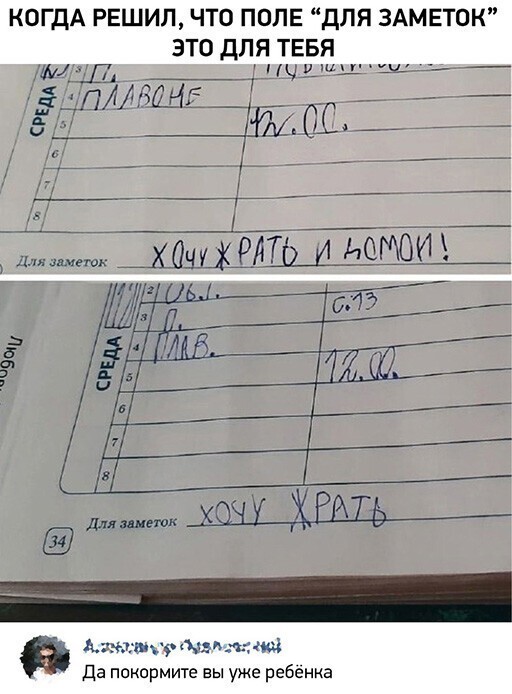 КОГДА РЕШИЛ, ЧТО ПОЛЕ “ДЛЯ ЗАМЕТОК”
ЭТО ДЛЯ ТЕБЯ
СРЕДА
3 П.
4 ПЛАВОНЕ
5 12.00.
6
7
8
Для заметок ХОЧУ ЖРАТЬ И ДОМОЙ!
СРЕДА
2 с.13
3 П.
4 ПЛАВ.
5 12.00.
6
7
8
Для заметок ХОЧУ ЖРАТЬ
34
Да покормите вы уже ребёнка